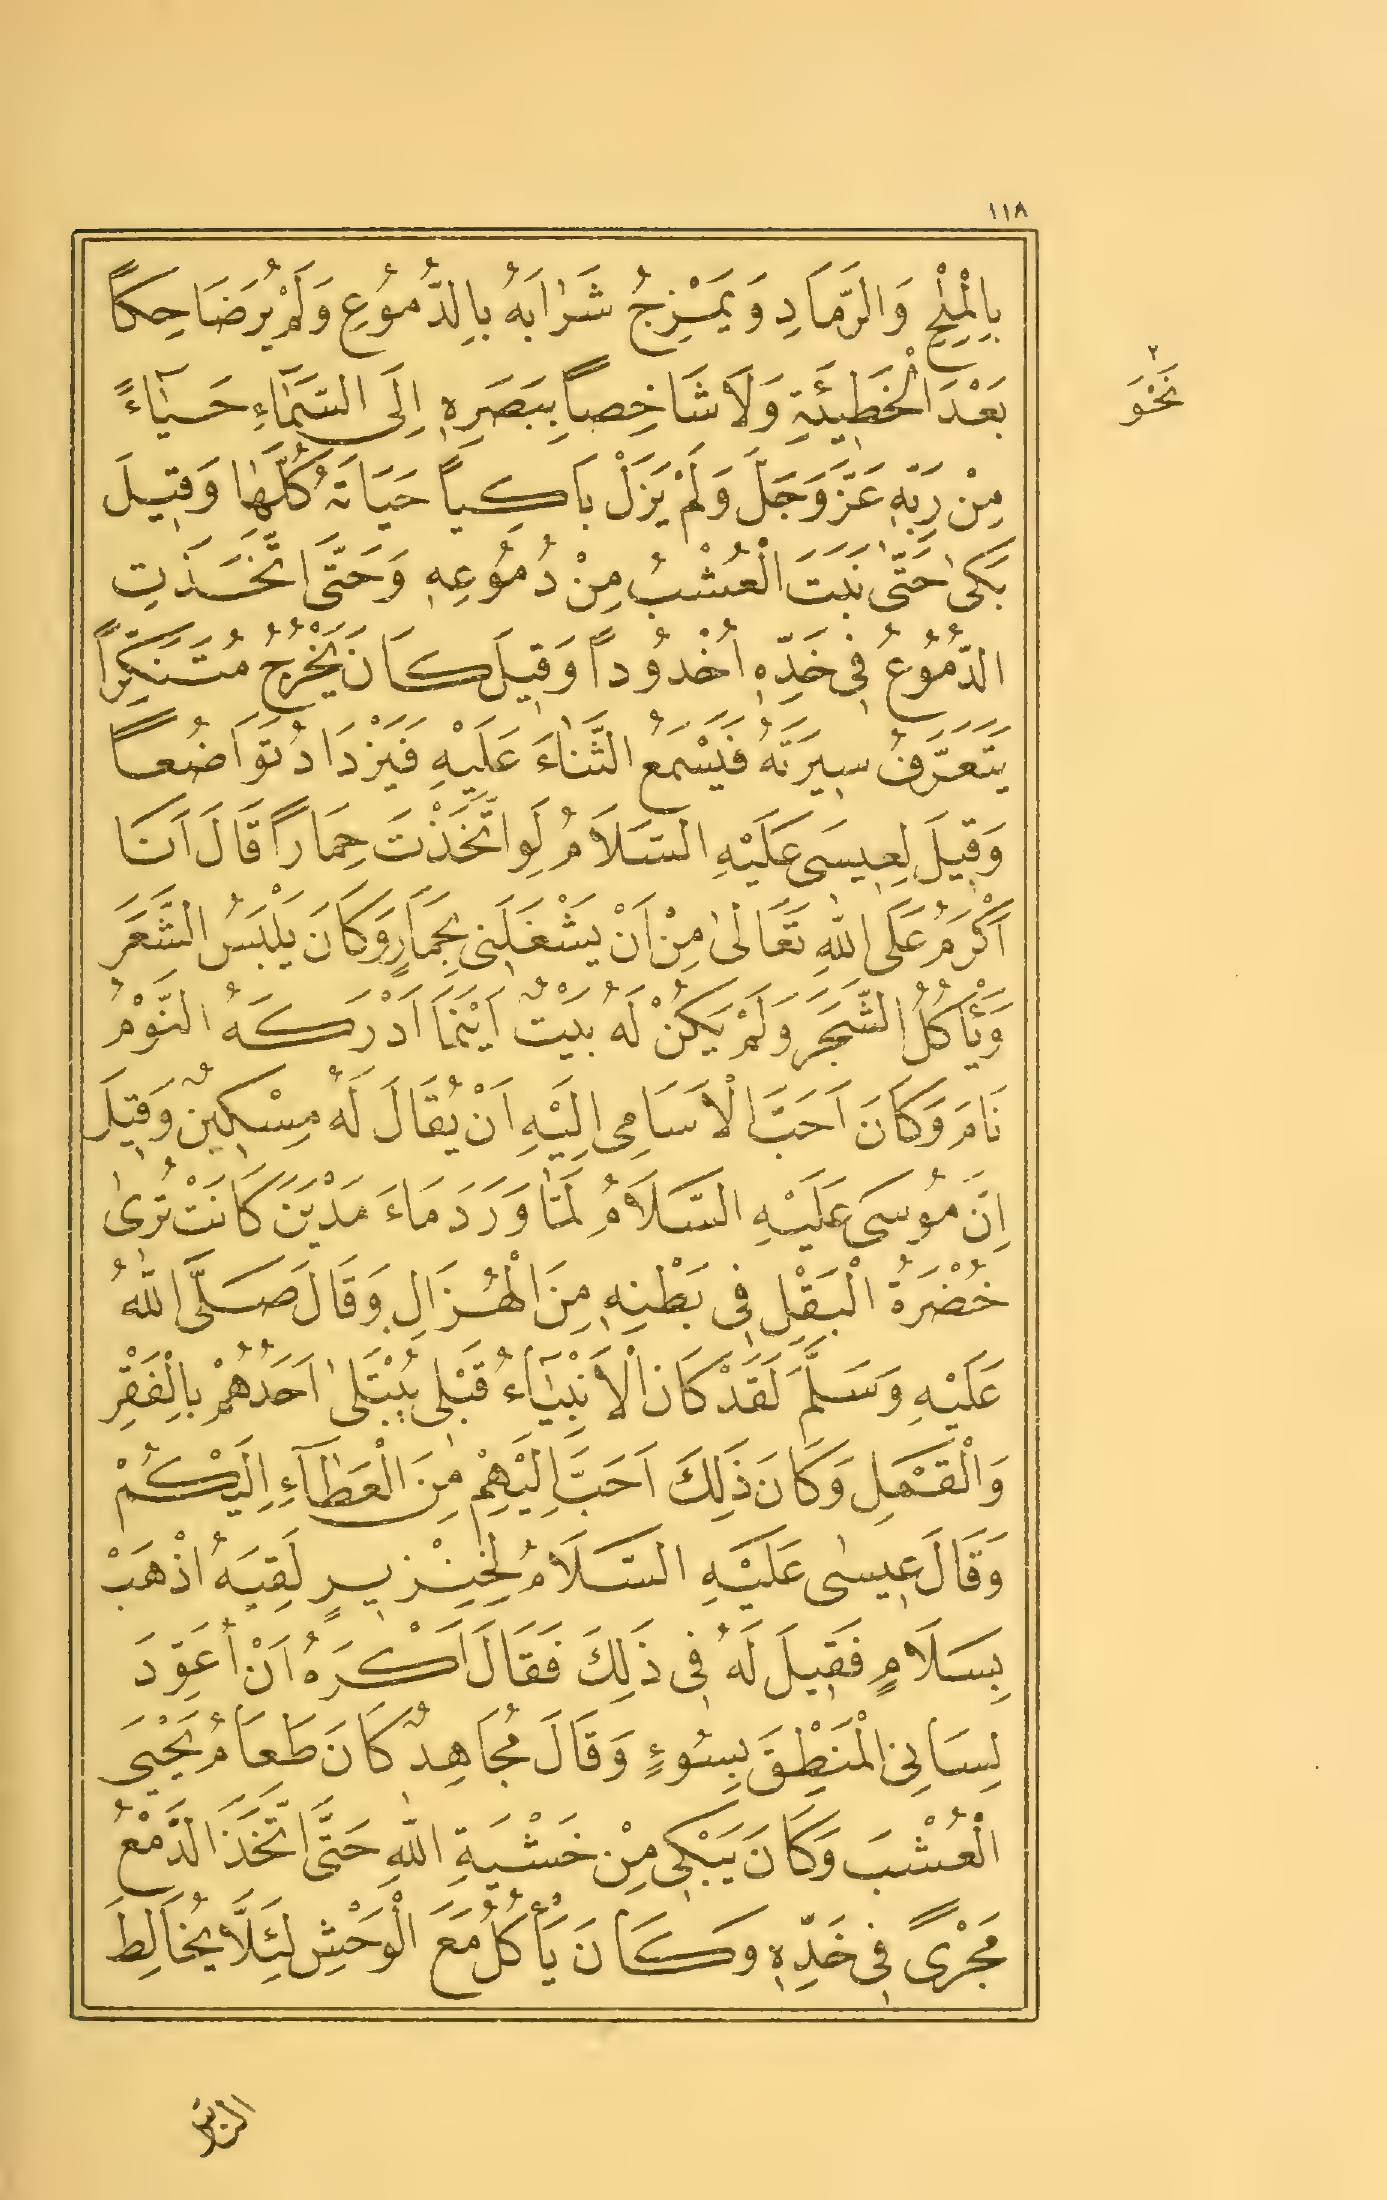 ١١٨
بِالْمِلْحِ وَالرَّمَادِ وَيَمْزِجُ شَرَابَهُ بِالدُّمُوعِ وَلَمْ يُرَ ضَاحِكاً
بَعْدَ الْخَطِيئَةِ وَلَا شَاخِصاً بِبَصَرِهِ إِلَى السَّمَاءِ حَيَاءً
٢
نَحْوَ
مِنْ رَبِّهِ عَزَّ وَجَلَّ وَلَمْ يَزَلْ بَاكِياً حَيَاتَهُ كُلَّهَا وَقِيلَ
بَكَىٰ حَتَّىٰ نَبَتَ الْعُشْبُ مِنْ دُمُوعِهِ وَحَتَّى اتَّخَذَتِ
الدُّمُوعُ فِي خَدِّهِ اُخْدُوداً وَقِيلَ كَانَ يَخْرُجُ مُتَنَكِّراً
يَتَعَرَّفُ سِيرَتَهُ فَيَسْمَعُ الثَّنَاءَ عَلَيْهِ فَيَزْدَادُ تَوَاضُعاً
وَقِيلَ لِعِيسَى عَلَيْهِ السَّلَامُ لَوِ اتَّخَذْتَ حِمَاراً قَالَ اَنَا
اَكْرَمُ عَلَى اللهِ تَعَالَىٰ مِنْ اَنْ يَشْغَلَنِي بِحِمَارٍ وَكَانَ يَلْبَسُ الشَّعَرَ
وَيَأْكُلُ الشَّجَرَ وَلَمْ يَكُنْ لَهُ بَيْتٌ اَيْنَمَا اَدْرَكَهُ النَّوْمُ
نَامَ وَكَانَ اَحَبَّ الْاَسَامِي اِلَيْهِ اَنْ يُقَالَ لَهُ مِسْكِينٌ وَقِيلَ
اِنَّ مُوسَى عَلَيْهِ السَّلَامُ لَمَّا وَرَدَ مَاءَ مَدْيَنَ كَانَتْ تُرَىٰ
خُضْرَةُ الْبَقْلِ فِي بَطْنِهِ مِنَ الْهُزَالِ وَقَالَ صَلَّى اللهُ
عَلَيْهِ وَسَلَّمَ لَقَدْ كَانَ الْاَنْبِيَآءُ قَبْلِي يُبْتَلَىٰ اَحَدُهُمْ بِالْفَقْرِ
وَالْقَمْلِ وَكَانَ ذَلِكَ اَحَبَّ اِلَيْهِمْ مِنَ الْعَطَآءِ اِلَيْكُمْ
وَقَالَ عِيسٰى عَلَيْهِ السَّلَامُ لِخِنْزِيرٍ لَقِيَهُ اذْهَبْ
بِسَلَامٍ فَقِيلَ لَهُ فِي ذَلِكَ فَقَالَ اَكْرَهُ اَنْ أُعَوِّدَ
لِسَانِي الْمَنْطِقَ بِسُوءٍ وَقَالَ مُجَاهِدٌ كَانَ طَعَامُ يَحْيَى
الْعُشْبَ وَكَانَ يَبْكِي مِنْ خَشْيَةِ اللهِ حَتَّى اتَّخَذَ الدَّمْعُ
مَجْرًى فِي خَدِّهِ وَكَانَ يَأْكُلُ مَعَ الْوَحْشِ لِئَلَّا يُخَالِطَ
النَّاسَ